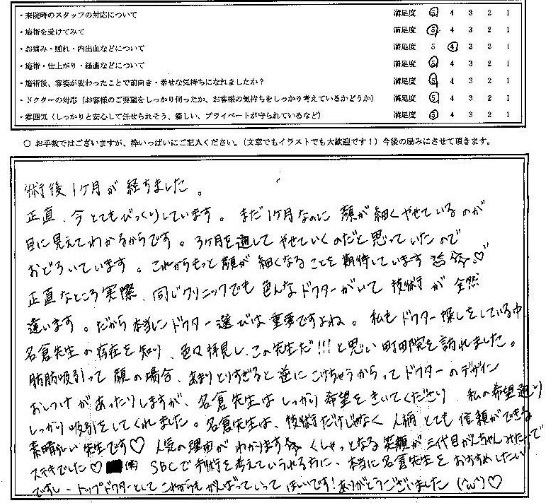 ・来院時のスタッフの対応について 満足度 5 4 3 2 1
・施術を受けてみて 満足度 5 4 3 2 1
・お痛み・腫れ・内出血などについて 満足度 5 4 3 2 1
・施術・仕上がり・経過などについて 満足度 5 4 3 2 1
・施術後、容姿が変わったことで前向き・幸せな気持ちになれましたか？ 満足度 5 4 3 2 1
・ドクターの対応（お客様のご要望をしっかり伺ったか、お客様の気持ちをしっかり考えているかどうか） 満足度 5 4 3 2 1
・雰囲気（しっかりと安心して任せられそう、優しい、プライベートが守られているなど） 満足度 5 4 3 2 1
○ お手数ではございますが、枠いっぱいにご記入ください。（文章でもイラストでも大歓迎です！）今後の励みにさせて頂きます。
術後1ヶ月が経ちました。
正直、今とてもびっくりしています。まだ1ヶ月なのに顔が細くやせているのが
目に見えてわかるからです。3ヶ月を通してやせていくのだと思っていたので
おどろいています。これからもっと顔が細くなることを期待しています♡
正直なところ実際、同じクリニックでも色んなドクターがいて技術が全然
違います。だから本当にドクター選びは重要ですよね。私もドクター探しをしている中
名倉先生の存在を知り、色々拝見し、この先生だ!!!と思い町田院を訪れました。
脂肪吸引って顔の場合、あまりとりすぎると逆にこけちゃうからってドクターのデザイン
おしつけがあったりしますが、名倉先生はしっかり希望をきいてくださり、私の希望通り
しっかり吸引をしてくれました。名倉先生は、技術だけじゃなく人柄とても信頼ができる
素晴らしい先生です♡人気の理由がわかります。くしゃっとなる笑顔が三代目がんちゃんみたいで
ステキでした♡ SBCで手術を考えている方に、本当に名倉先生をおすすめしたい
ですし、トップドクターとしてこれからもがんばっていってほしいです！ありがとうございました